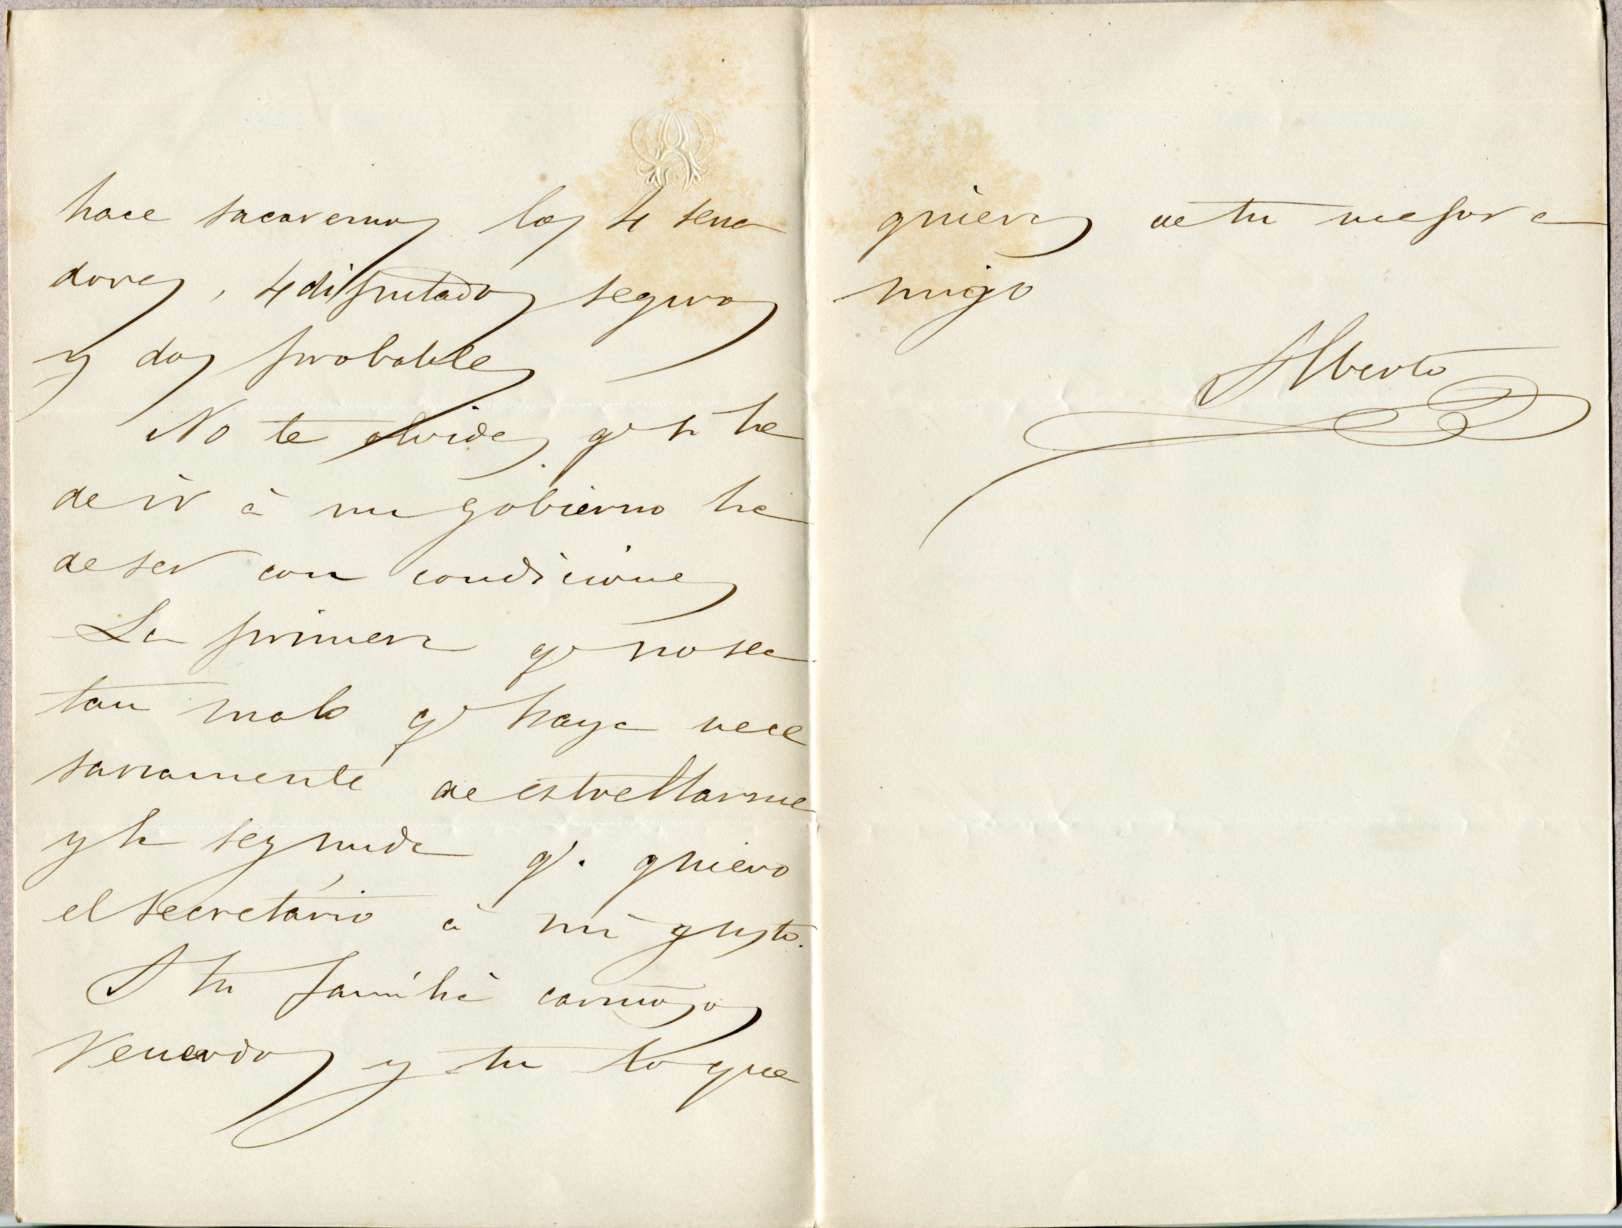 hace sacaremos los 4 sena
dores, 4 disputados seguros
y dos probables
No te olvides q.e si he
de ir à un gobierno ha
de ser con condiciones
La primera q.e no sea
tan malo q.e haya nece
sariamente de estrellarme
y la segunda q.e quiero
el secretário à mi gusto.
A tu família cariñosos
recuerdos y tu lo que
quieras de tu mejor a
migo
Alberto